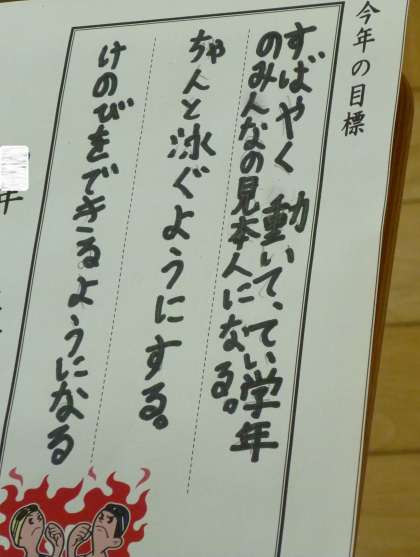 今年の目標
すばやく動いて、てい学年
のみんなの見本人になる。
ちゃんと泳ぐようにする。
けのびをできるようになる
年